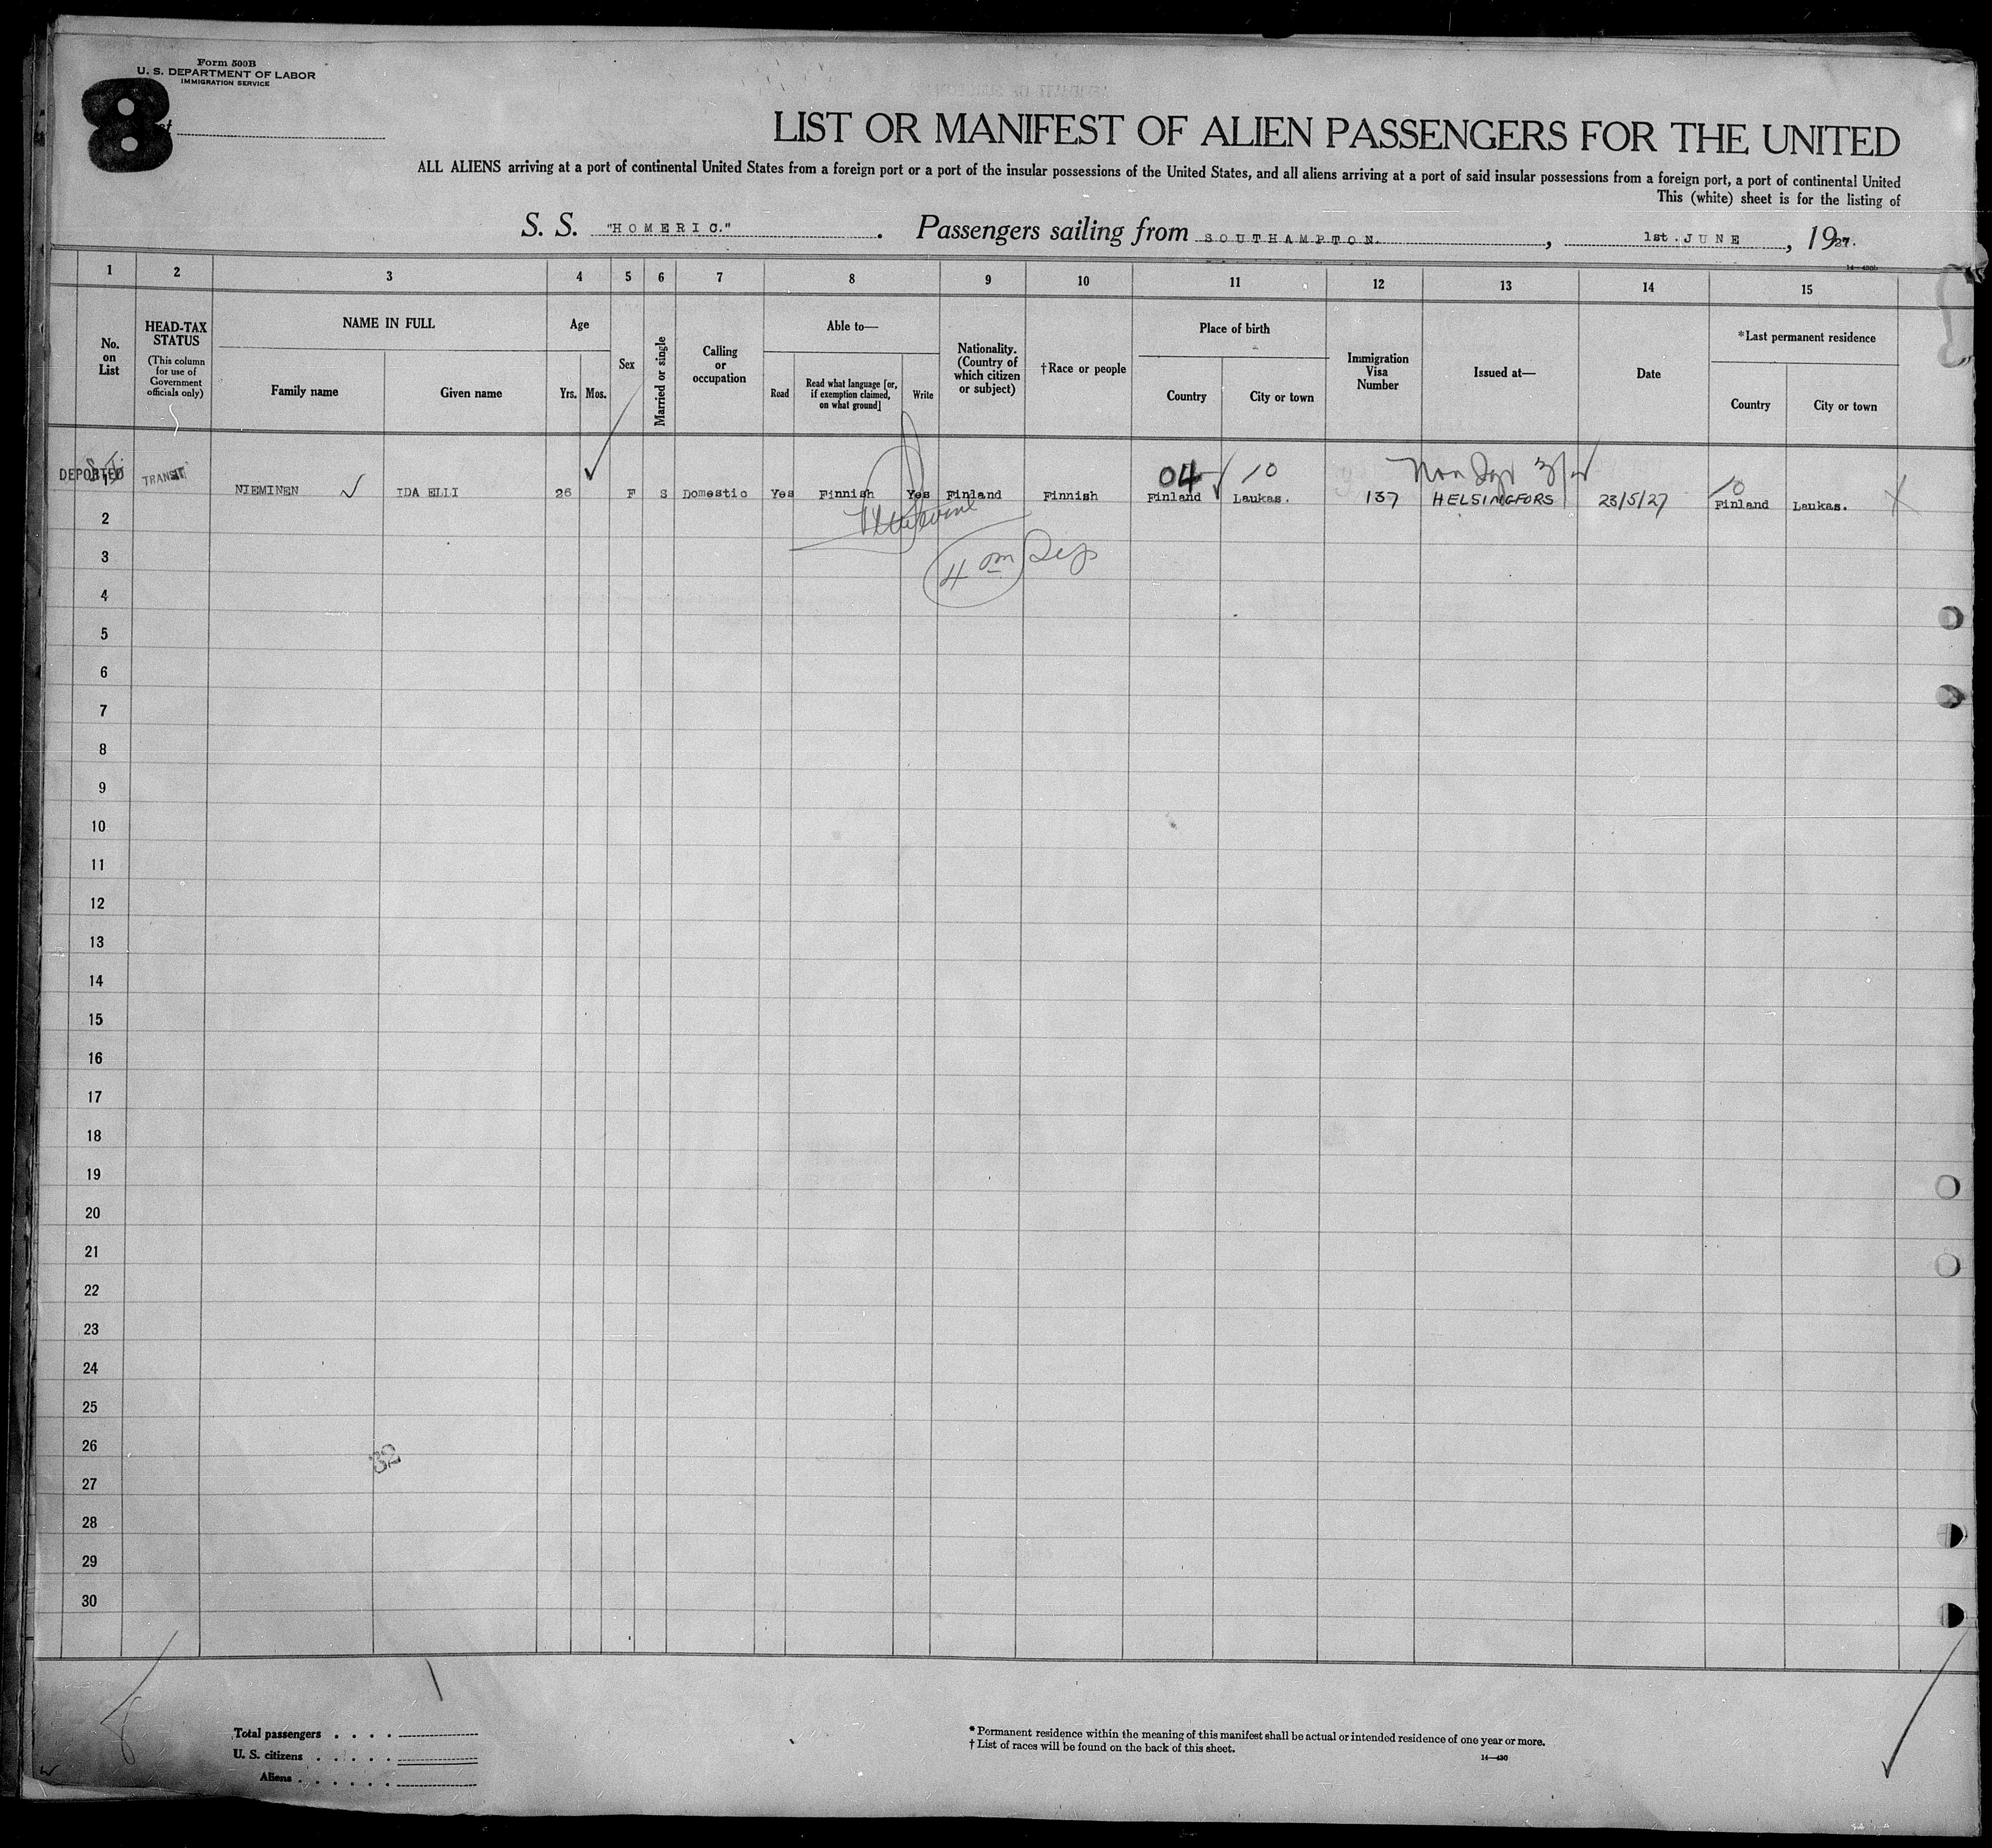 Form 500B
U. S. DEPARTMENT OF LABOR
IMMIGRATION SERVICE
8
LIST OR MANIFEST OF ALIEN PASSENGERS FOR THE UNITED
ALL ALIENS arriving at a port of continental United States from a foreign port or a port of the insular possessions of the United States, and all aliens arriving at a port of said insular possessions from a foreign port, a port of continental United
This (white) sheet is for the listing of
S. S. "HOMERIC." . Passengers sailing from SOUTHAMPTON. , 1st. JUNE , 1927.
1 2 3 4 5 6 7 8 9 10 11 12 13 14 15
No. on List
HEAD-TAX STATUS
(This column for use of Government officials only)
NAME IN FULL
Family name
Given name
Age
Yrs.
Mos.
Sex
Married or single
Calling or occupation
Able to—
Read
Read what language [or, if exemption claimed, on what ground]
Write
Nationality. (Country of which citizen or subject)
†Race or people
Place of birth
Country
City or town
Immigration Visa Number
Issued at—
Date
*Last permanent residence
Country
City or town
04 10 10
DEPORTED TRANSIT NIEMINEN IDA ELLI 26 F S Domestic Yes Finnish Yes Finland Finnish Finland Laukas. 137 HELSINGFORS 23/5/27 Finland Laukas.
2
3
4
5
6
7
8
9
10
11
12
13
14
15
16
17
18
19
20
21
22
23
24
25
26
32
27
28
29
30
Total passengers . . . .
U. S. citizens . . . . .
Aliens . . . . . .
* Permanent residence within the meaning of this manifest shall be actual or intended residence of one year or more.
† List of races will be found on the back of this sheet.
14—430